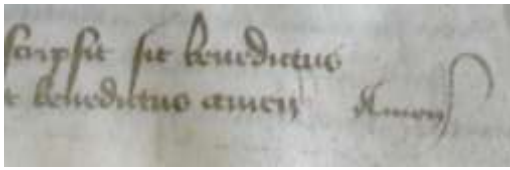 scripsit sit benedictus
t benedictus amen Amen